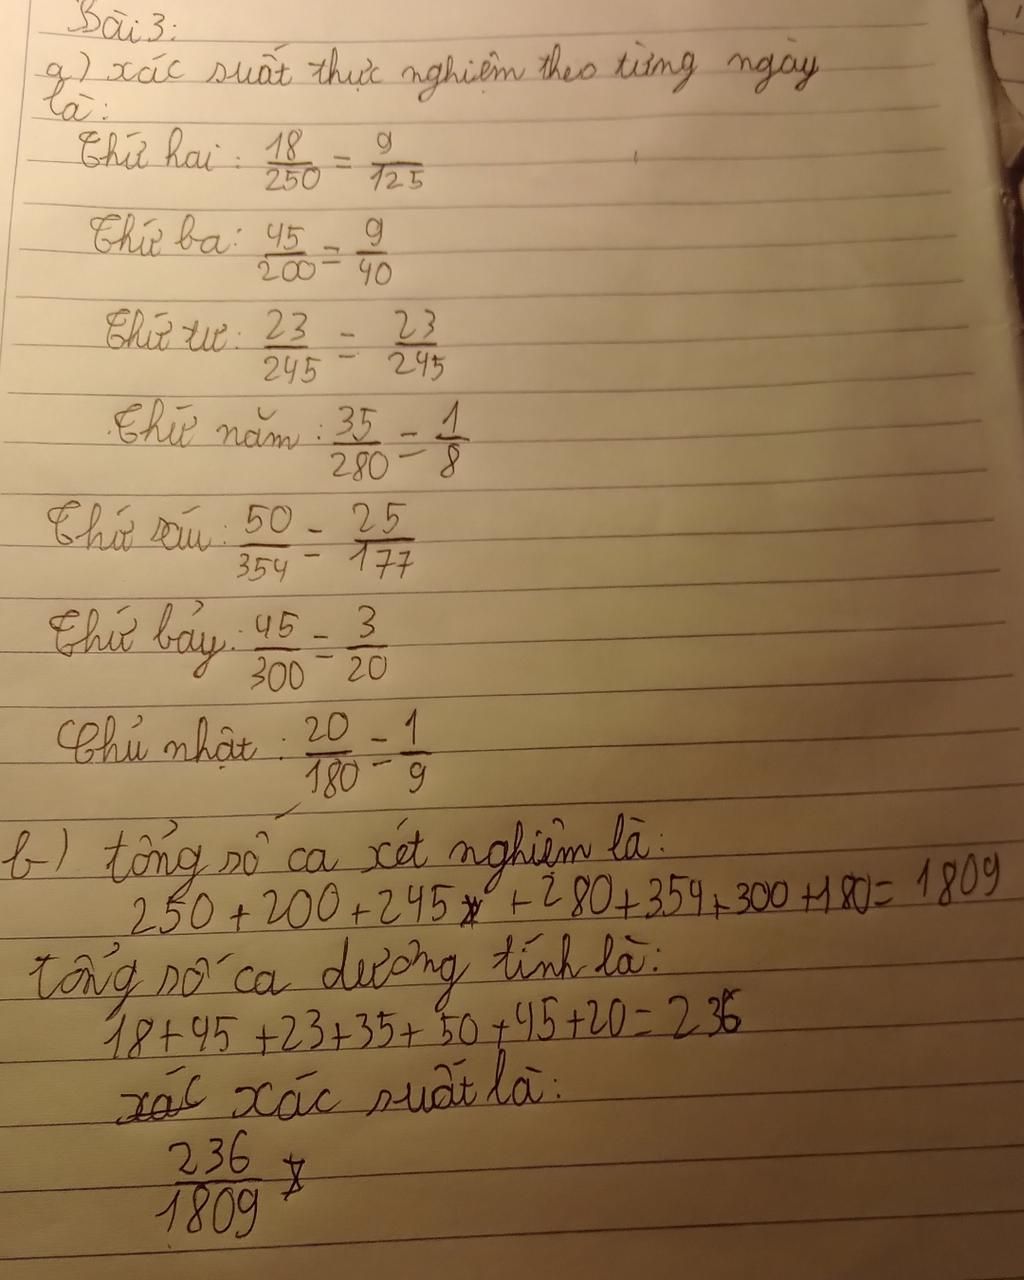 Bài 3:
a) xác suất thực nghiệm theo từng ngày
là:
Thứ hai: 18/250 = 9/125
Thứ ba: 45/200 = 9/40
Thứ tư: 23/245 = 23/245
Thứ năm: 35/280 = 1/8
Thứ sáu: 50/354 = 25/177
Thứ bảy: 45/300 = 3/20
Chủ nhật: 20/180 = 1/9
b) tổng số ca xét nghiệm là:
250 + 200 + 245 + 280 + 354 + 300 + 180 = 1809
tổng số ca dương tính là:
18 + 45 + 23 + 35 + 50 + 45 + 20 = 236
xác xác suất là:
236/1809